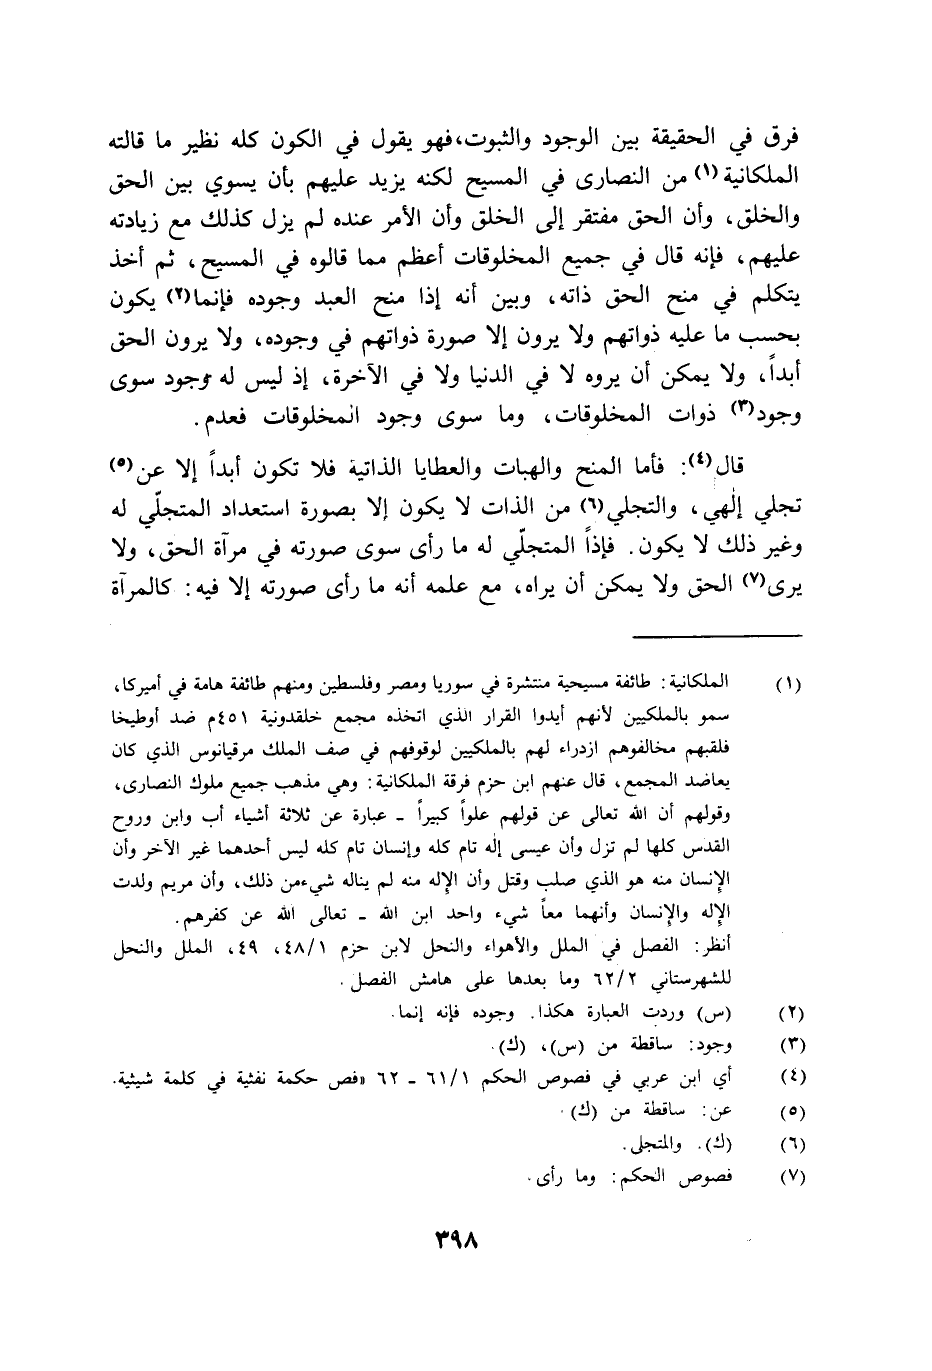 فرق في الحقيقة بين الوجود والثبوت، فهو يقول في الكون كله نظير ما قالته
الملكانية(١) من النصارى في المسيح لكنه يزيد عليهم بأن يسوي بين الحق
والخلق، وأن الحق مفتقر إلى الخلق وأن الأمر عنده لم يزل كذلك مع زيادته
عليهم، فإنه قال في جميع المخلوقات أعظم مما قالوه في المسيح، ثم أخذ
يتكلم في منح الحق ذاته، وبين أنه إذا منح العبد وجوده فإنما(٢) يكون
بحسب ما عليه ذواتهم ولا يرون إلا صورة ذواتهم في وجوده، ولا يرون الحق
أبداً، ولا يمكن أن يروه لا في الدنيا ولا في الآخرة، إذ ليس له وجود سوى
وجود(٣) ذوات المخلوقات، وما سوى وجود المخلوقات فعدم.
قال(٤): فأما المنح والهبات والعطايا الذاتية فلا تكون أبداً إلا عن(٥)
تجلي إلٰهي، والتجلي(٦) من الذات لا يكون إلا بصورة استعداد المتجلّي له
وغير ذلك لا يكون. فإذاً المتجلّي له ما رأى سوى صورته في مرآة الحق، ولا
يرى(٧) الحق ولا يمكن أن يراه، مع علمه أنه ما رأى صورته إلا فيه: كالمرآة
(١) الملكانية: طائفة مسيحية منتشرة في سوريا ومصر وفلسطين ومنهم طائفة هامة في أميركا،
سمو بالملكيين لأنهم أيدوا القرار الذي اتخذه مجمع خلقدونية ٤٥١م ضد أوطيخا
فلقبهم مخالفوهم ازدراء لهم بالملكيين لوقوفهم في صف الملك مرقيانوس الذي كان
يعاضد المجمع، قال عنهم ابن حزم فرقة الملكانية: وهي مذهب جميع ملوك النصارى،
وقولهم أن الله تعالى عن قولهم علواً كبيراً ـ عبارة عن ثلاثة أشياء أب وابن وروح
القدس كلها لم تزل وأن عيسى إلٰه تام كله وإنسان تام كله ليس أحدهما غير الآخر وأن
الإنسان منه هو الذي صلب وقتل وأن الإله منه لم يناله شيء من ذلك، وأن مريم ولدت
الإله والإنسان وأنهما معاً شيء واحد ابن الله ـ تعالى الله عن كفرهم.
أنظر: الفصل في الملل والأهواء والنحل لابن حزم ٤٨/١، ٤٩، الملل والنحل
للشهرستاني ٦٢/٢ وما بعدها على هامش الفصل.
(٢) (س) وردت العبارة هكذا. وجوده فإنه إنما.
(٣) وجود: ساقطة من (س)، (ك).
(٤) أي ابن عربي في فصوص الحكم ٦١/١ ـ ٦٢ «فص حكمة نفثية في كلمة شيثية.
(٥) عن: ساقطة من (ك).
(٦) (ك). والمتجلى.
(٧) فصوص الحكم: وما رأى.
٣٩٨